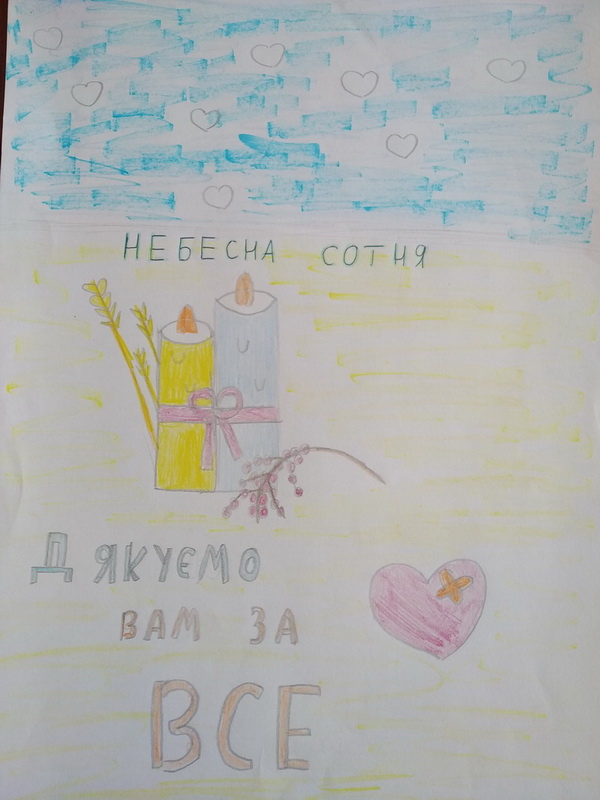 НЕБЕСНА СОТНЯ
ДЯКУЄМО
ВАМ ЗА
ВСЕ